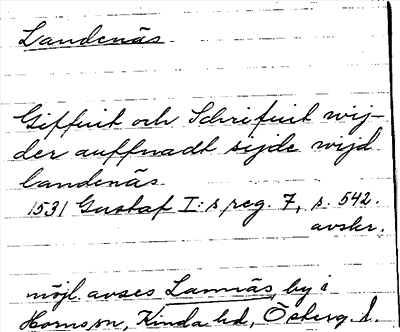 Landenäs
Giffuit och Schrifuit wij-
der auffwadt sijde wijd
landenäs
1531 Gustaf I:s reg. 7, s. 542.
avskr.
möjl. avses Lannäs, by i
Horns sn, Kinda hd, Österg. l.